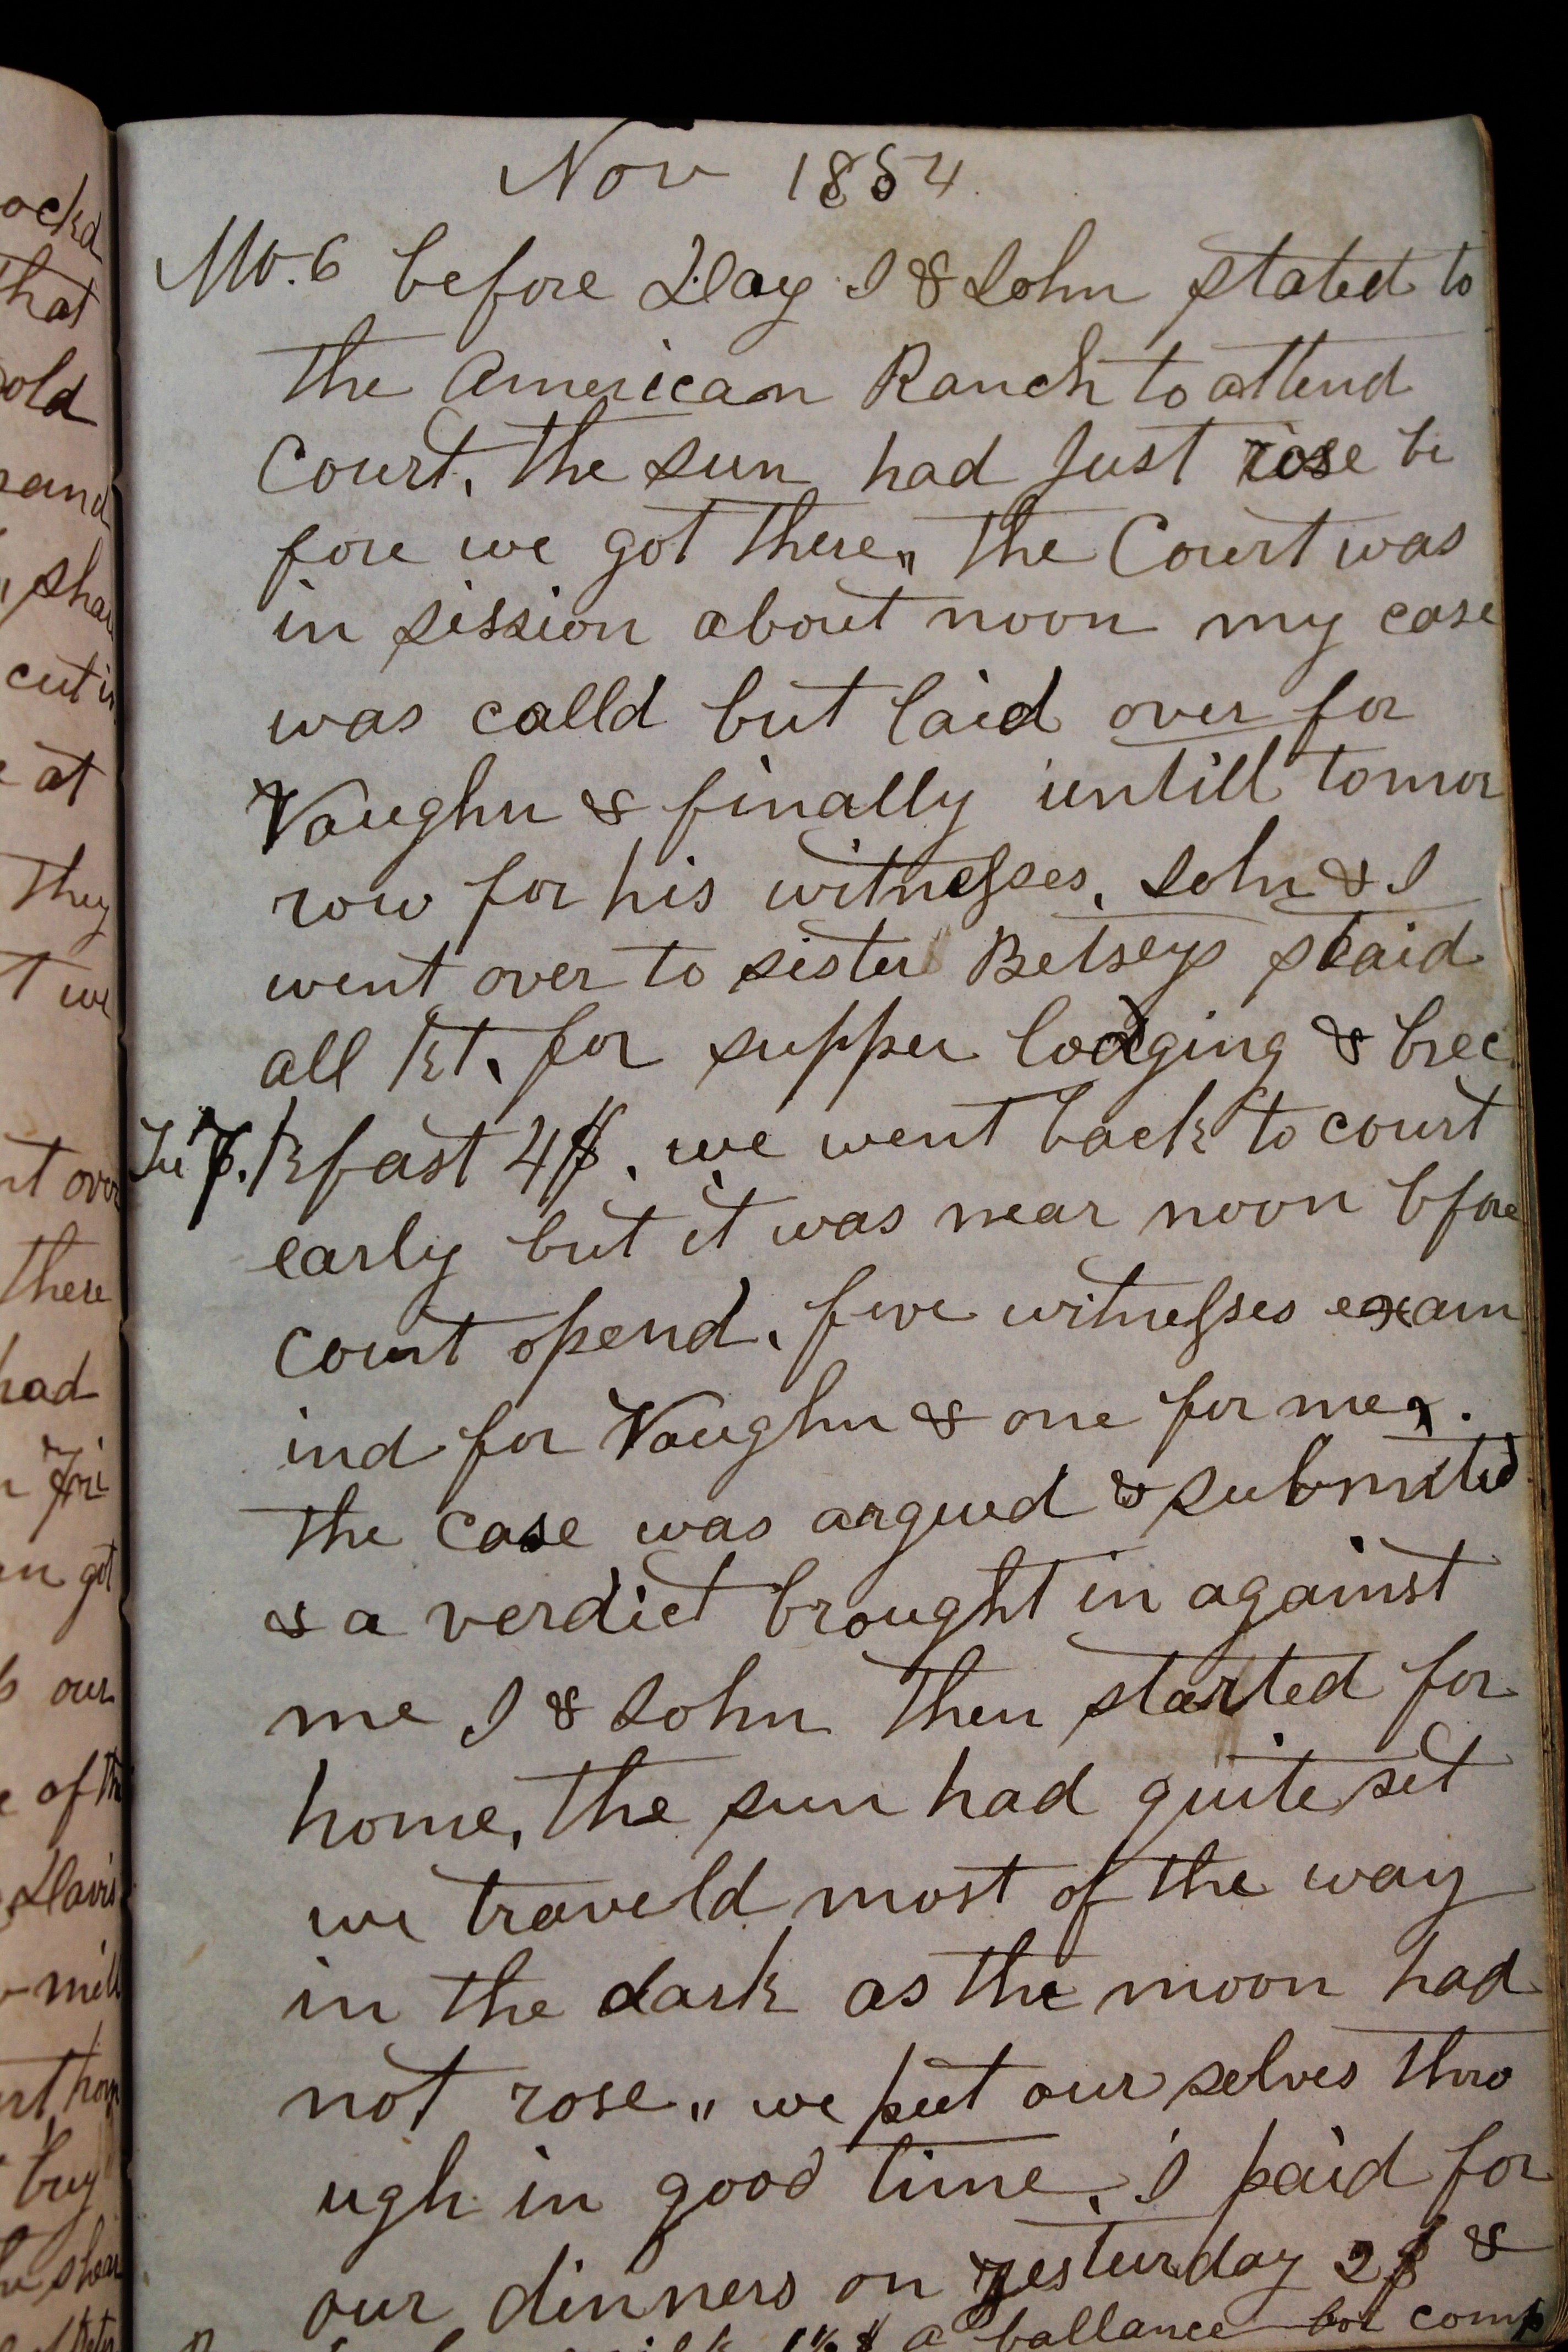 ockd
that
old
and
shau
cut in
at
They
T we
nt over
there
had
Fri
an got
our
of the
Davis
mill
buy
Nov 1854
Mo. 6 before Day I & John stated to
the American Ranch to attend
Court, the sun had Just rose be
fore we got there,, the Court was
in session about noon my case
was calld but laid over for
Vaughn & finally untill tomor
row for his witnesses, John & I
went over to sister Betseys staid
all kt. for supper lodging & brec
Tu 7. kfast 4$, we went back to court
early but it was near noon bfore
court opend. five witnesses exam
ind for Vaughn & one for me.
the case was argued & submited
& a verdict brought in against
me I & John then started for
home, the sun had quite set
we traveld most of the way
in the dark as the moon had
not rose,, we put our selves thro
ugh in good time, I paid for
our dinners on yesturday 2$ &
a ballance for comp